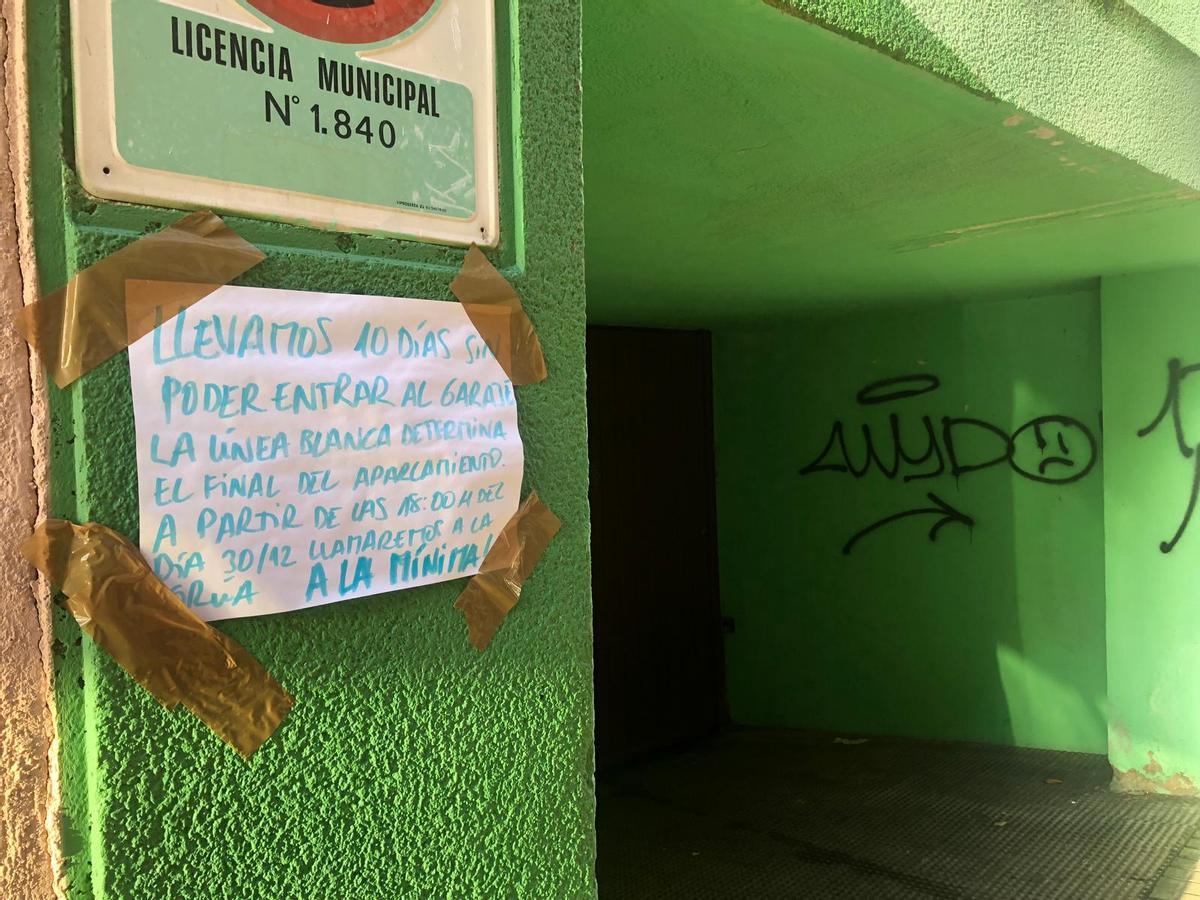 LICENCIA MUNICIPAL
Nº 1.840
LLEVAMOS 10 DÍAS SIN
PODER ENTRAR AL GARAJE
LA LÍNEA BLANCA DETERMINA
EL FINAL DEL APARCAMIENTO.
A PARTIR DE LAS 18:00H DEL
DÍA 30/12 LLAMAREMOS A LA
GRÚA A LA MÍNIMA!